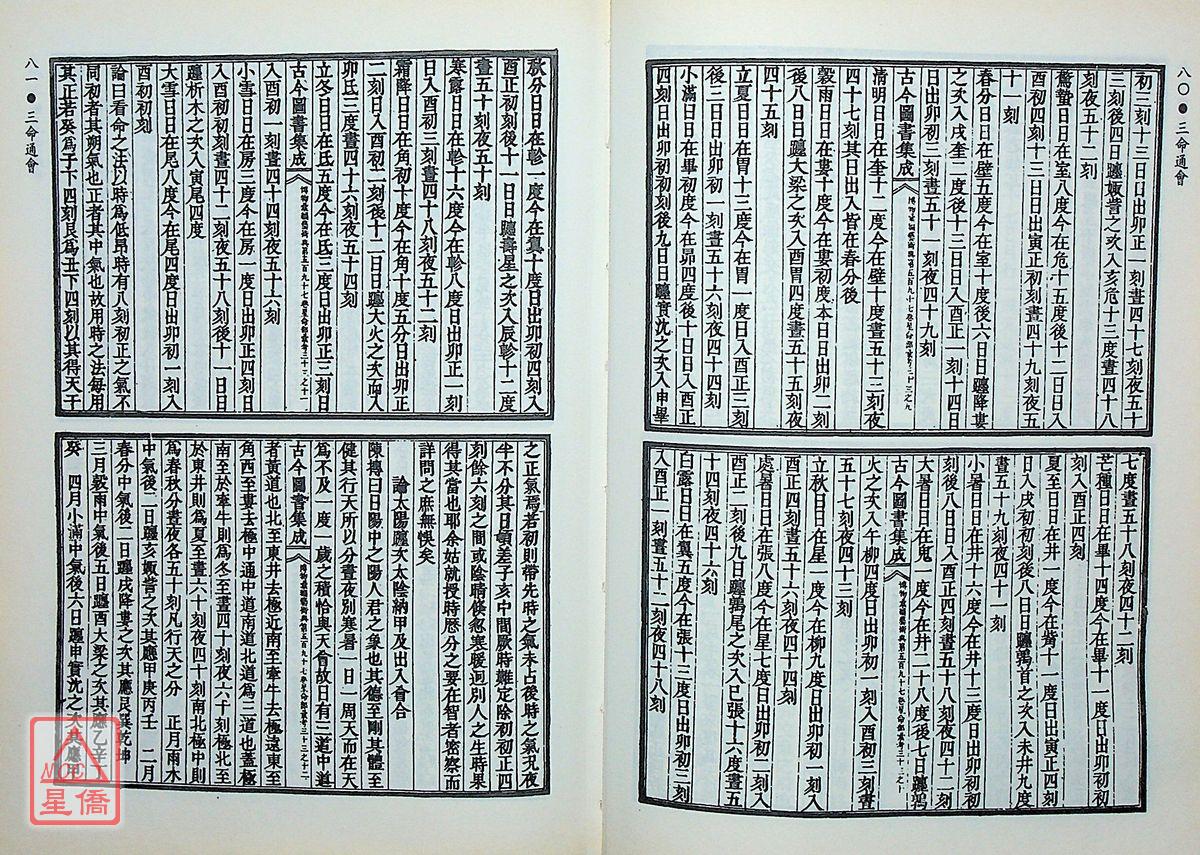 八〇●三命通會
初三刻十三日日出卯正一刻晝四十七刻夜五十
三刻後四日躔娵訾之次入亥危十三度晝四十八
刻夜五十二刻
驚蟄日日在室八度今在危十五度後十二日日入
酉初四刻十三日日出寅正初刻晝四十九刻夜五
十一刻
春分日日在壁五度今在室十度後六日日躔降婁
之次入戌奎二度後十三日日入酉正一刻十四日
日出卯初二刻晝五十一刻夜四十九刻
古今圖書集成
清明日日在奎十二度今在壁十度晝五十三刻夜
四十七刻其日出入皆在春分後
穀雨日日在婁十度今在婁初度本日日出卯二刻
後八日日躔大梁之次入酉胃四度晝五十五刻夜
四十五刻
立夏日日在胃十三度今在胃一度日入酉正三刻
後三日日出卯初一刻晝五十六刻夜四十四刻
小滿日日在畢初度今在昴四度後十日日入酉正
四刻日出卯初初刻後九日日躔實沈之次入申畢
七度晝五十八刻夜四十二刻
芒種日日在畢十四度今在畢十一度日出卯初初
刻入酉正四刻
夏至日日在井一度今在觜十一度日出寅正四刻
日入戌初初刻後八日日躔鶉首之次入未井九度
晝五十九刻夜四十一刻
小暑日日在井十六度今在井十三度日出卯初初
刻後八日日入酉正四刻晝五十八刻夜四十二刻
大暑日日在鬼一度今在井二十八度後七日躔鶉
古今圖書集成
火之次入午柳四度日出卯初一刻入酉初三刻晝
五十七刻夜四十三刻
立秋日日在星一度今在柳九度日出卯初一刻入
酉正四刻晝五十六刻夜四十四刻
處暑日日在張八度今在星七度日出卯初二刻入
酉正二刻後九日躔鶉尾之次入巳張十六度晝五
十四刻夜四十六刻
白露日日在翼五度今在張十三度日出卯初三刻
入酉正一刻晝五十二刻夜四十八刻
八一●三命通會
秋分日日在軫一度今在翼十度日出卯初四刻入
酉正初刻後十一日日躔壽星之次入辰軫十二度
晝五十刻夜五十刻
寒露日日在軫十六度今在軫八度日出卯正一刻
日入酉初三刻晝四十八刻夜五十二刻
霜降日日在角初十度今在角十度五分日出卯正
二刻日入酉初二刻後十二日日躔大火之次而入
卯氐三度晝四十六刻夜五十四刻
立冬日日在氐五度今在氐三度日出卯正三刻日
古今圖書集成
入酉初一刻晝四十四刻夜五十六刻
小雪日日在房三度今在房一度日出卯正四刻日
入酉初初刻晝四十二刻夜五十八刻後十一日日
躔析木之次入寅尾四度
大雪日日在尾八度今在尾四度日出卯初一刻入
酉初初刻
論曰看命之法以時爲低昂時有八刻初正之氣不
同初者其朔氣也正者其中氣也故用時之法每用
其正若癸爲子下四刻艮爲丑下四刻以其得天干
之正氣焉若初則帶先時之氣未占後時之氣尤夜
半不分其日頓差子亥中間厥時難定除初初正四
刻餘六刻之間或陰晴倏忽寒暖迥別人之生時果
得其當也耶余姑就授時厯分之要在智者密察而
詳問之庶無悞矣
論太陽躔次太陰納甲及出入會合
陳摶曰日陽中之陽人君之象也其德至剛其體至
健其行天所以分晝夜別寒暑一日一周天而在天
爲不及一度一歲之積恰與天會故日有三道中道
古今圖書集成
者黃道也北至東井去極近南至牽牛去極遠東至
角西至婁去極中通中道南道北道爲三道也蓋極
南至於牽牛則爲冬至晝四十刻夜六十刻極北至
於東井則爲夏至晝六十刻夜四十刻南北極中則
爲春秋分晝夜各五十刻凡行天之分 正月雨水
中氣後二日躔亥娵訾之次其應甲庚丙壬 二月
春分中氣後二日躔戌降婁之次其應艮巽乾坤
三月穀雨中氣後五日躔酉大梁之次其應乙辛丁
癸 四月小滿中氣後六日躔申實沈之次其應甲
星僑